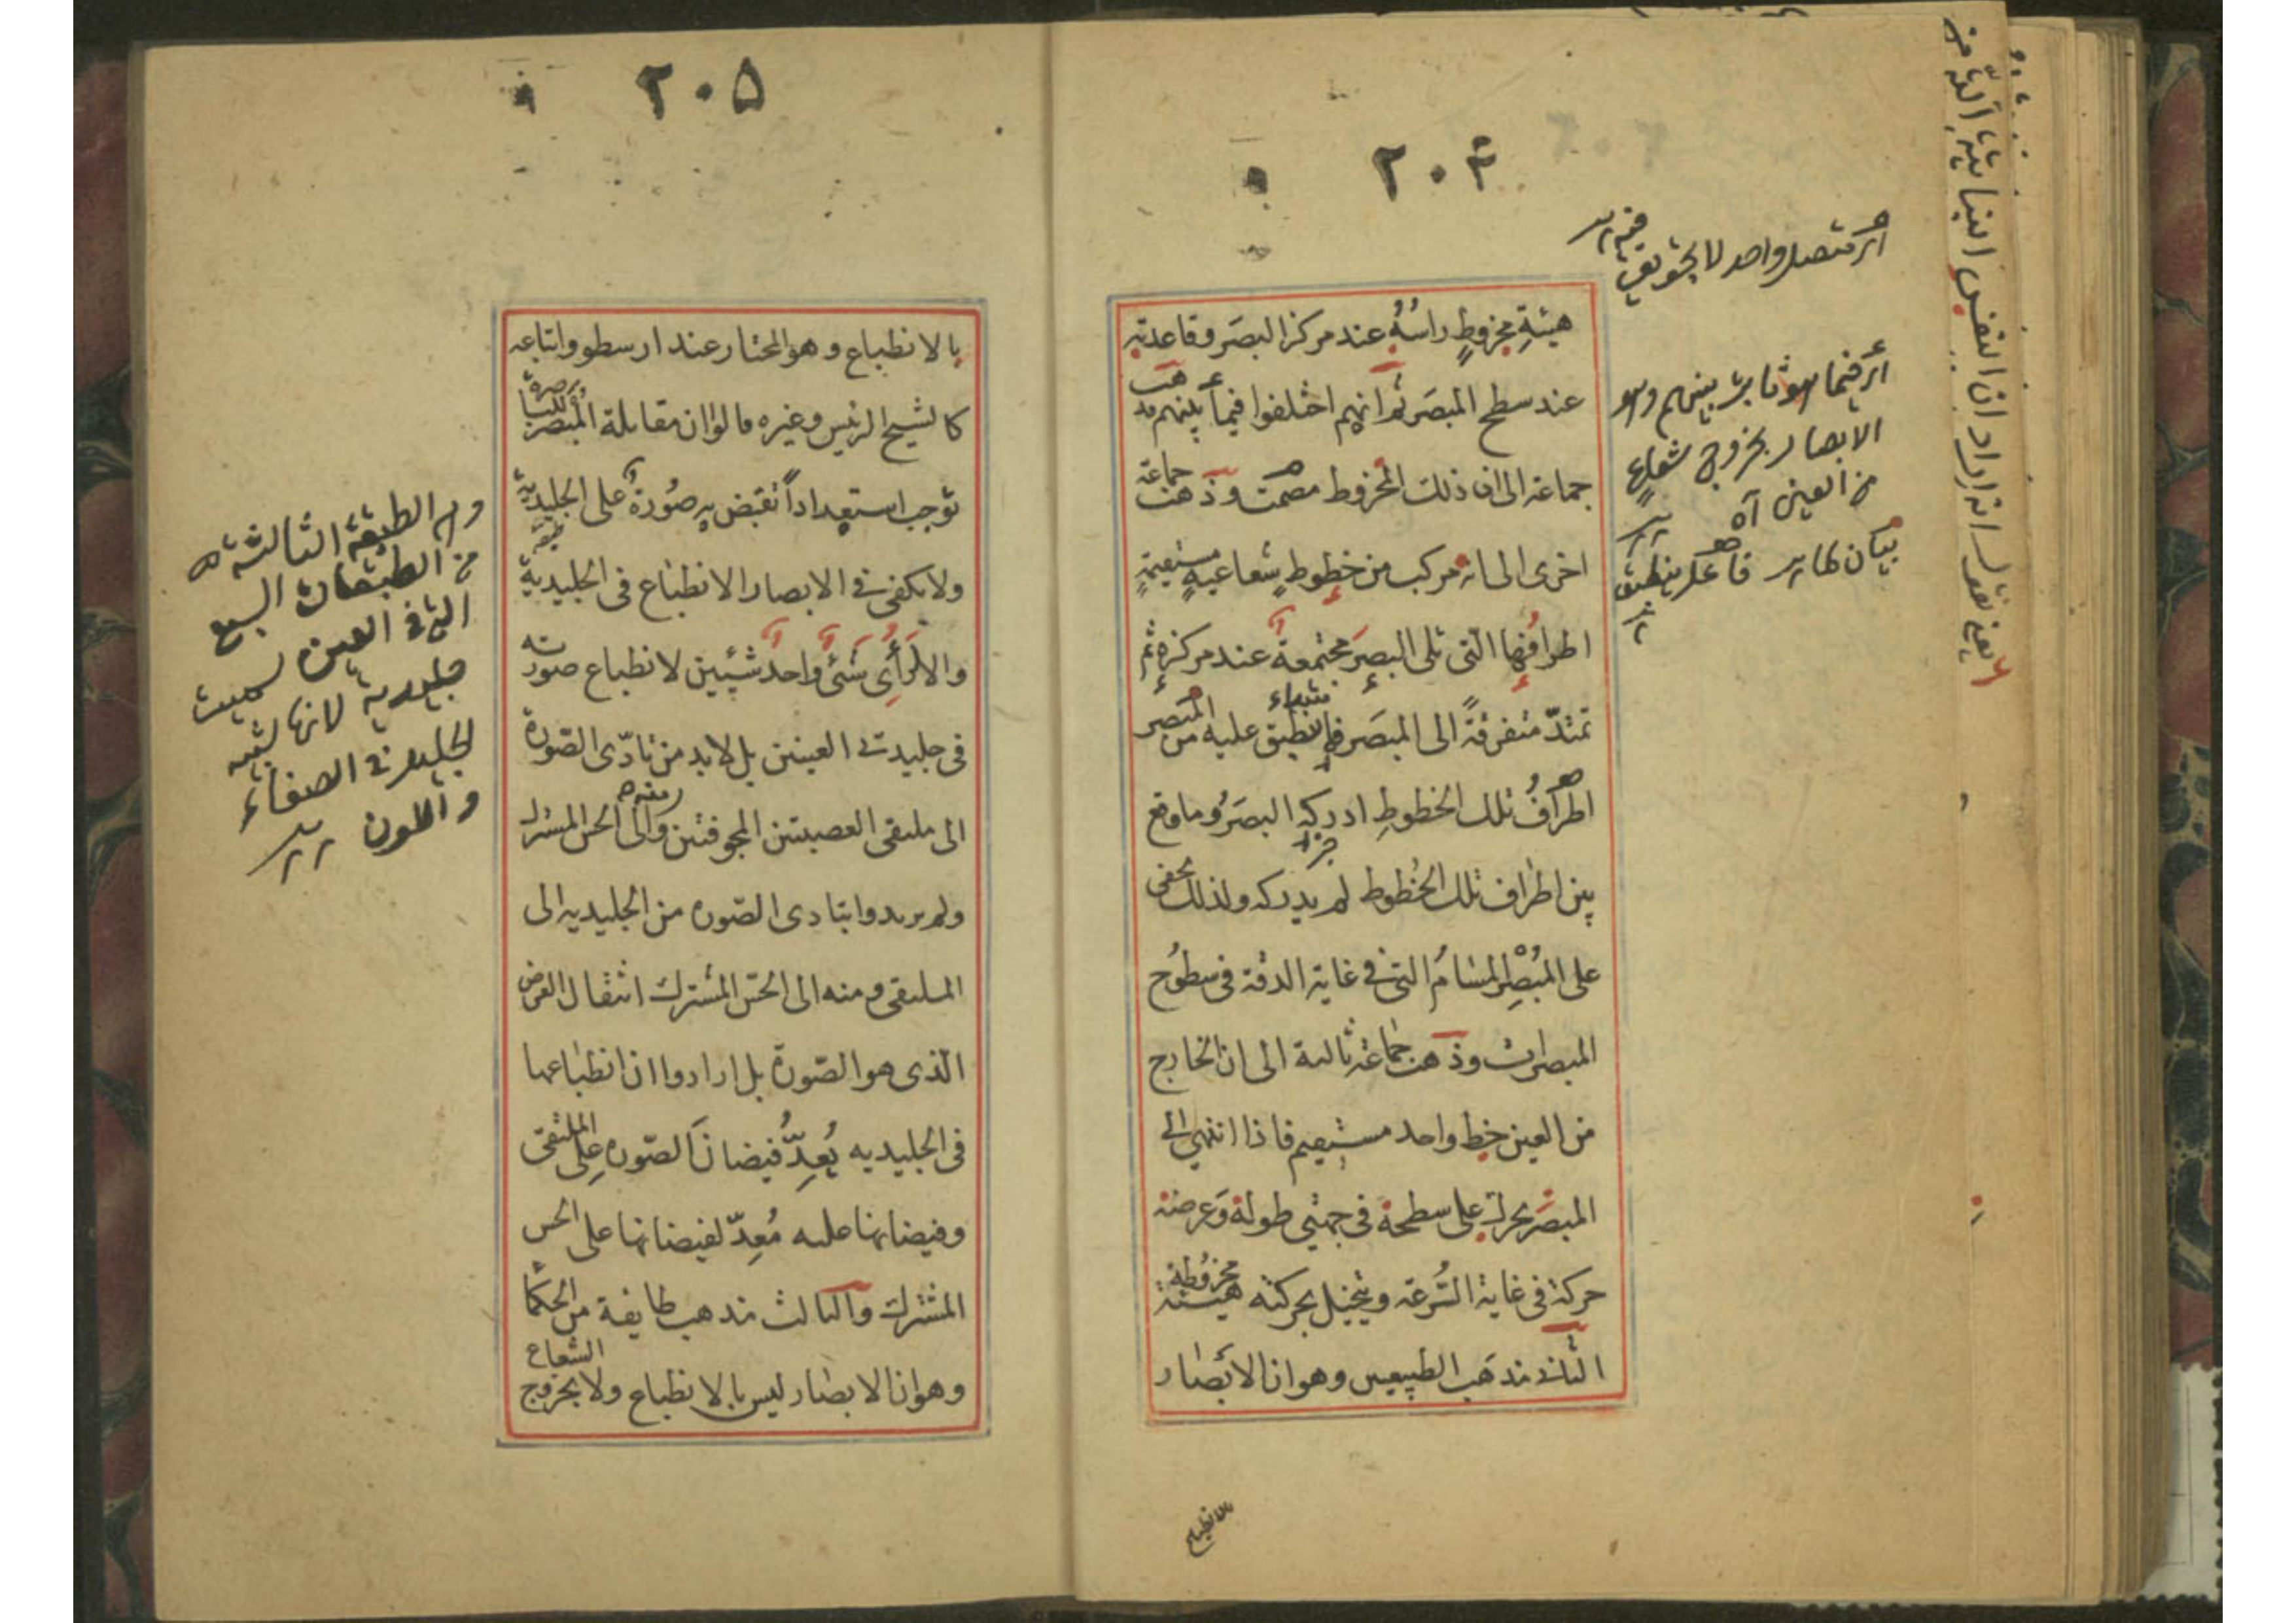 ٢٠٤
هيئةِ مخروطٍ راسُهُ عند مركز البصَر و قاعدته
عند سطح المبصَر ثم انهم اختلفوا فيما بينهم فذهب
جماعة الى ان ذلك المخروط مصمت و ذهبت جماعة
اخرى الى انه مركب من خطوطٍ شعاعيةٍ مستقيمةٍ
اطرافُها التى تلى البصَر مجتمعة عند مركزه ثم
تمتدّ متفرقةً الى المبصَر فما ينطبق عليه من المبصر
اطرافُ تلك الخطوطِ ادركه البصَرُ و ما وقع
بين اطراف تلك الخطوط لم يدركه و لذلك يخفى
على المبْصِر المسامُ التى فى غاية الدقة فى سطوح
المبصرات و ذهب جماعة ثالثة الى ان الخارج
من العين خط واحد مستقيم فاذا انتهى الى
المبصَر تحرك على سطحه فى جهتى طوله و عرضه
حركة فى غاية السُّرعة و يتخيل بحركته هيئة مخروطة
الثانى مذهب الطبيعيين و هو ان الابصار
اى متصل واحد لا تجويف فيه
اى فيما هو ثابت بينهم و هو
الابصار بخروج شعاعٍ
من العين آه
بيان لما
فاعل ينطبق
بالانطباع
٢٠٥
بالانطباع و هو المختار عند ارسطو و اتباعه
كالشيخ الرئيس و غيره قالوا ان مقابلة المُبصَر للباصرة
توجب استعداداً تفيض به صُورةٌ على الجليدية
و لا يكفى فى الابصار الانطباع فى الجليدية
و الا لرُأِىَ شئ واحد شيئين لانطباع صورته
فى جليدتى العينين بل لا بد من تادّى الصّورة
الى ملتقى العصبتين المجوفتين و منه الى الحس المشترك
و لم يريدوا بتادى الصّوره من الجليديه الى
الملتقى و منه الى الحسّ المشترك انتقال العرض
الّذى هو الصّورة بل ارادوا ان انطباعها
فى الجليديه يُعِدُّ فيضانَ الصّوره على الملتقى
و فيضانها عليه مُعِدّ لفيضانها على الحس
المشترك و الثالث مذهب طايفة من الحكما
و هو ان الابصار ليس بالانطباع و لا بخروج الشعاع
و هى الطبقة الثالثة
من الطبقات السبع
التى فى العين سميت
جليدية لانها تشبه
الجليد فى الصفاء
و اللون